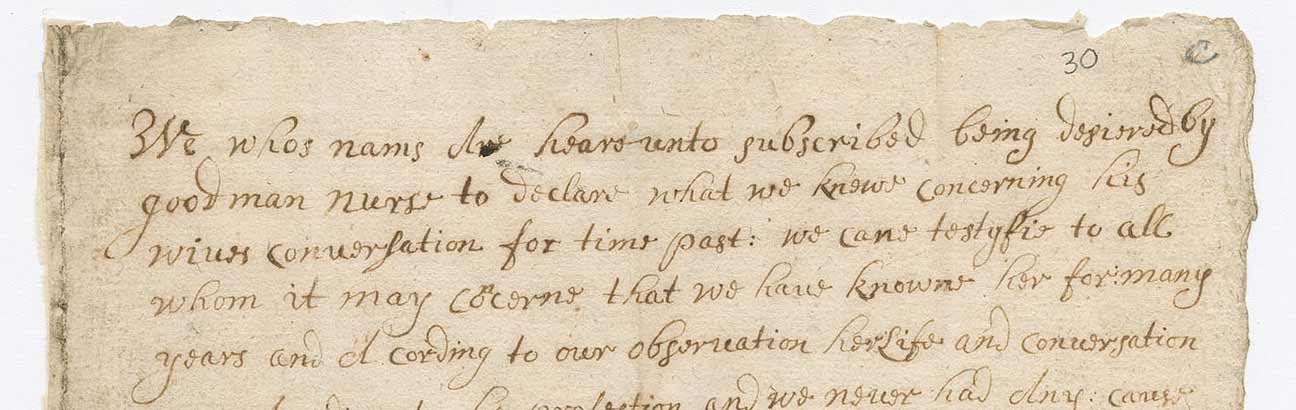 30 C
We whos nams Are heareunto subscribed being desiered by
goodman nurse to declare what we knewe concerning his
wives conversation for time past: we cane testyfie to all
whom it may cocerne that we have knowne her for: many
years and A cording to our observation her Life and conversation
profession and we never had Any: cause